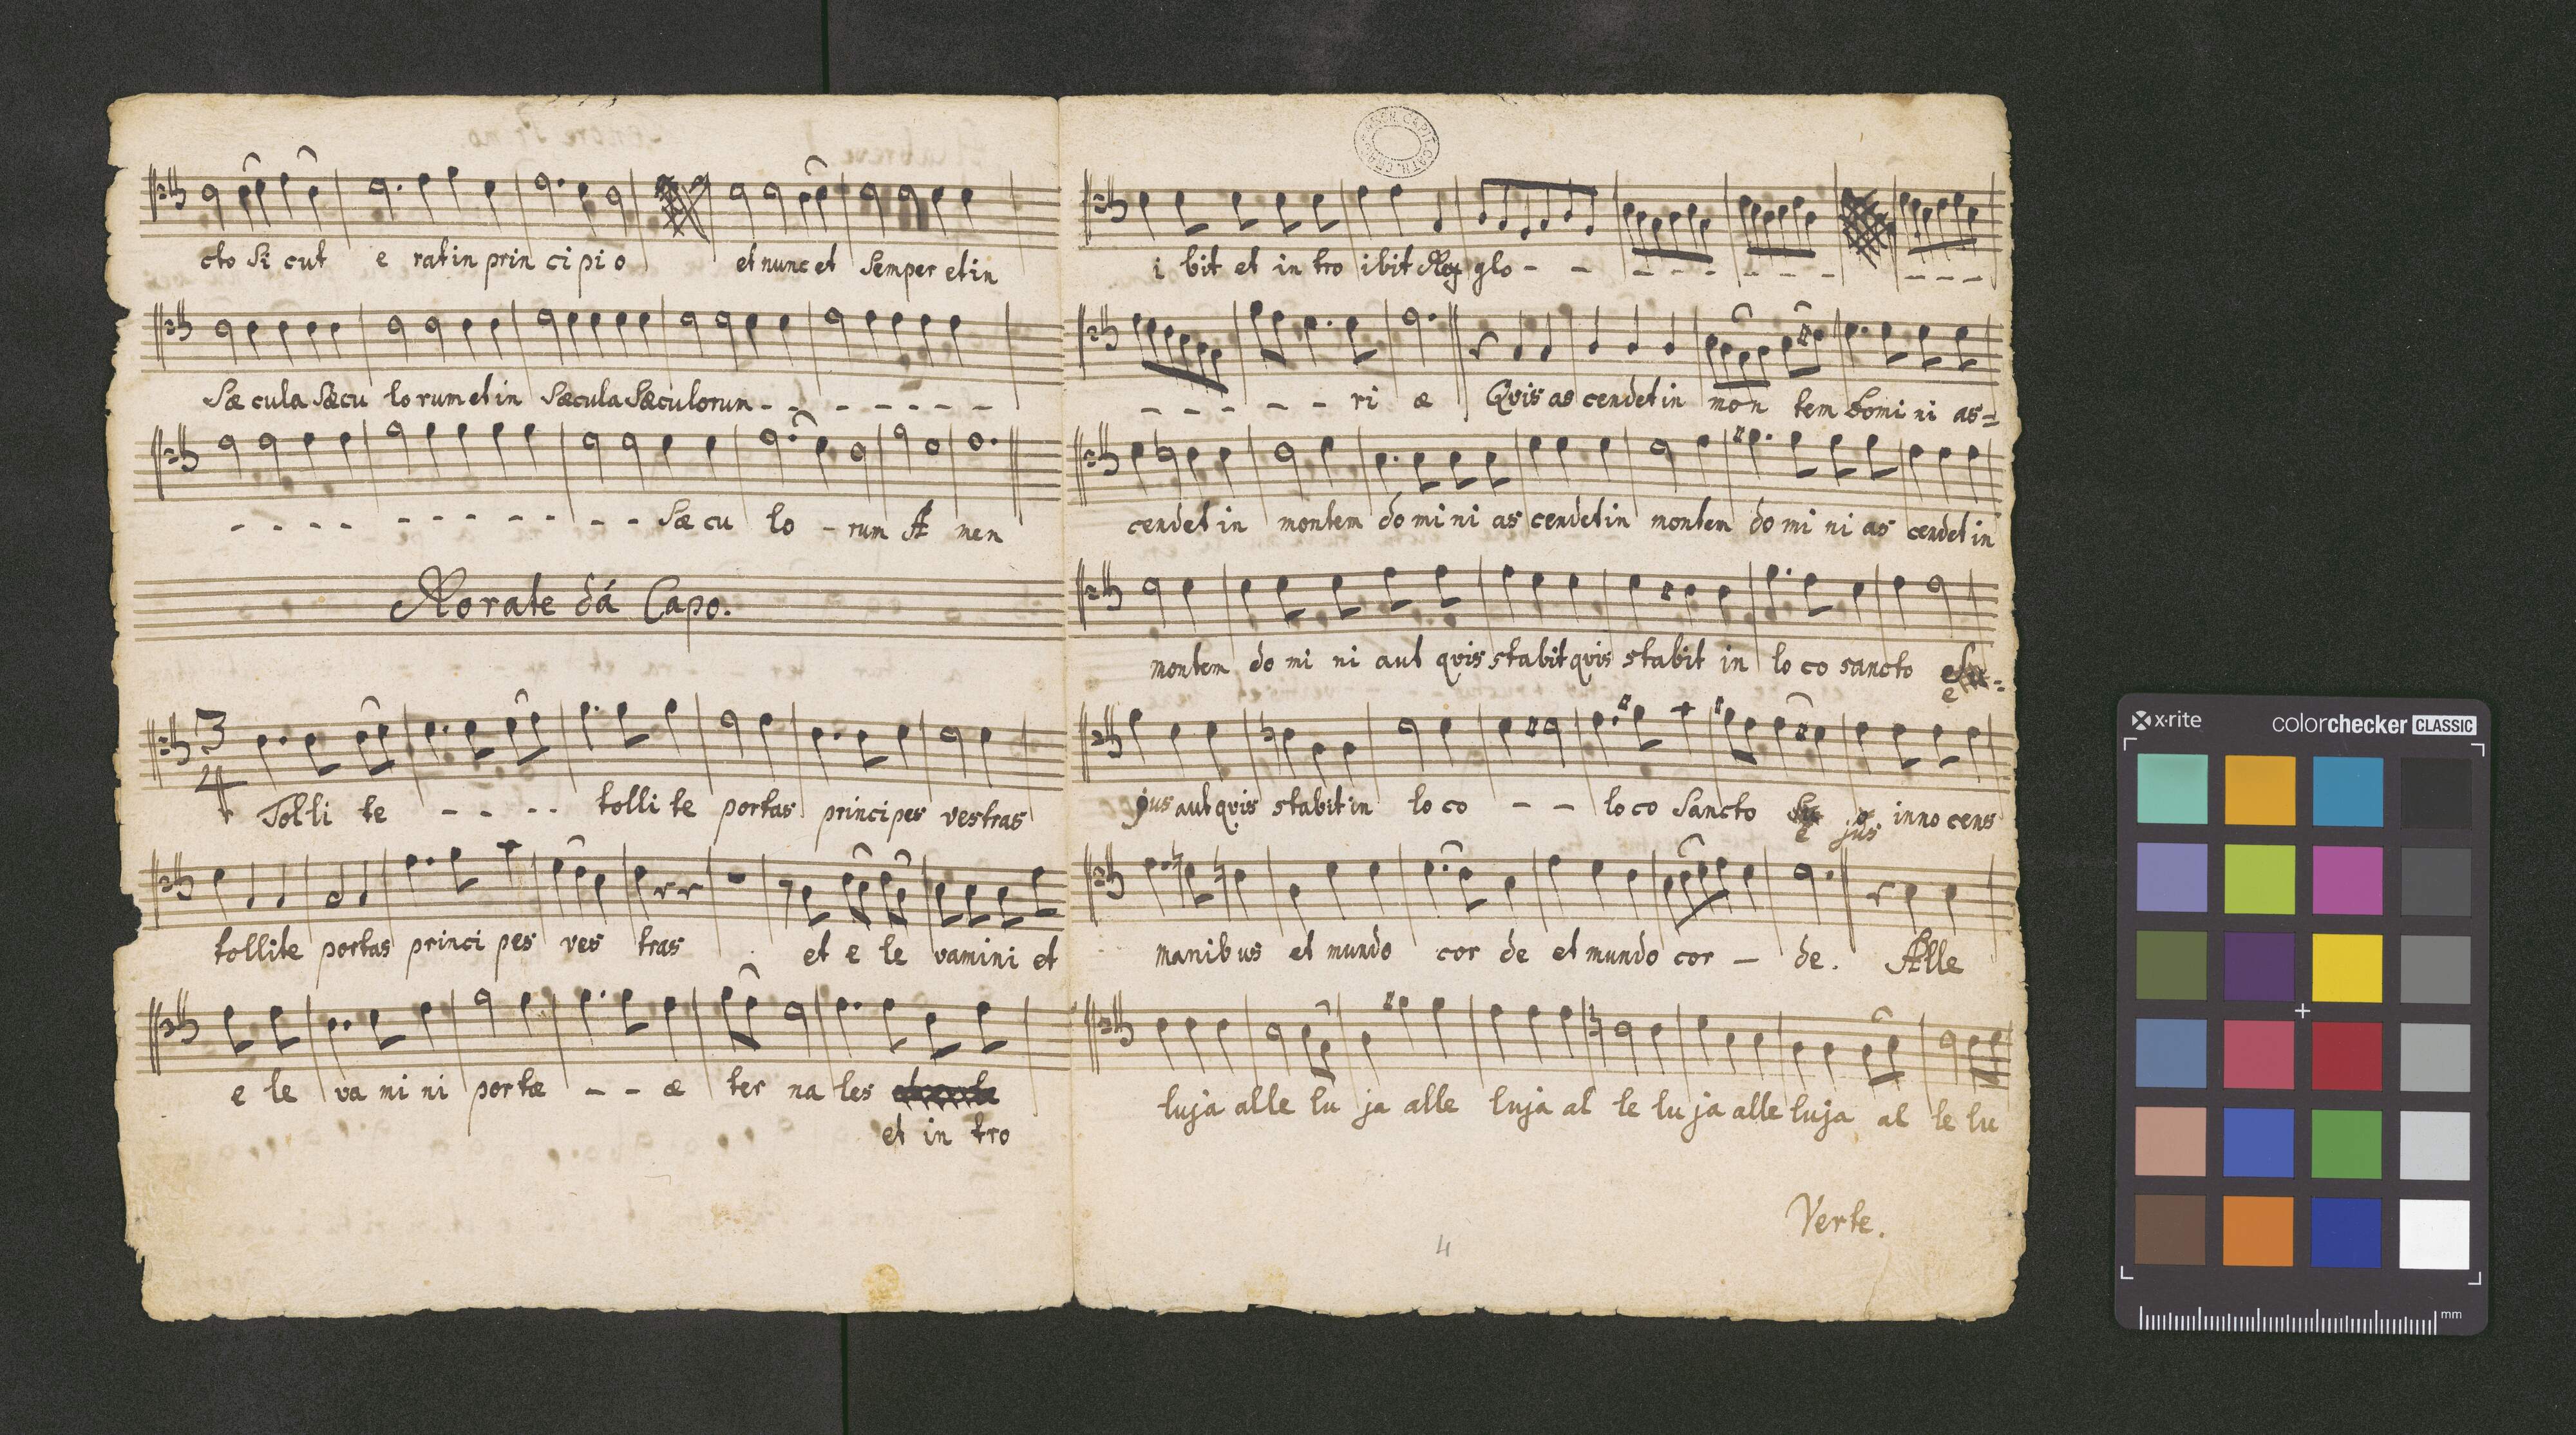 cto Si cut e rat in prin ci pi o et nunc et Semper et in
Sæ cula Sæcu lo rum et in Sæcula Sæculorun - - - - - - - -
- - - - - - - - - - - Sæ cu lo - rum A men
Rorate dá Capo.
3
4
Tolli te - - - - tolli te portas principes vestras
tollite portas princi pes ves tras et e le vamini et
e le va mi ni portæ - - æ ter na les
et in tro
i bit et in tro ibit Rex glo - - - - - - - - - - -
- - - - - - ri æ Qvis as cendet in mon tem Domi ni as=
cendet in montem do mi ni as cendet in montem do mi ni as cendet in
montem do mi ni aut qvis stabit qvis stabit in lo co sancto
e
jus aut qvis stabit in lo co - - lo co Sancto inno cens
e jus
manibus et mundo cor de et mundo cor - de. Alle
luja alle lu ja alle luja al le lu ja alle luja al le lu
Verte.
4
x-rite
colorchecker CLASSIC
mm